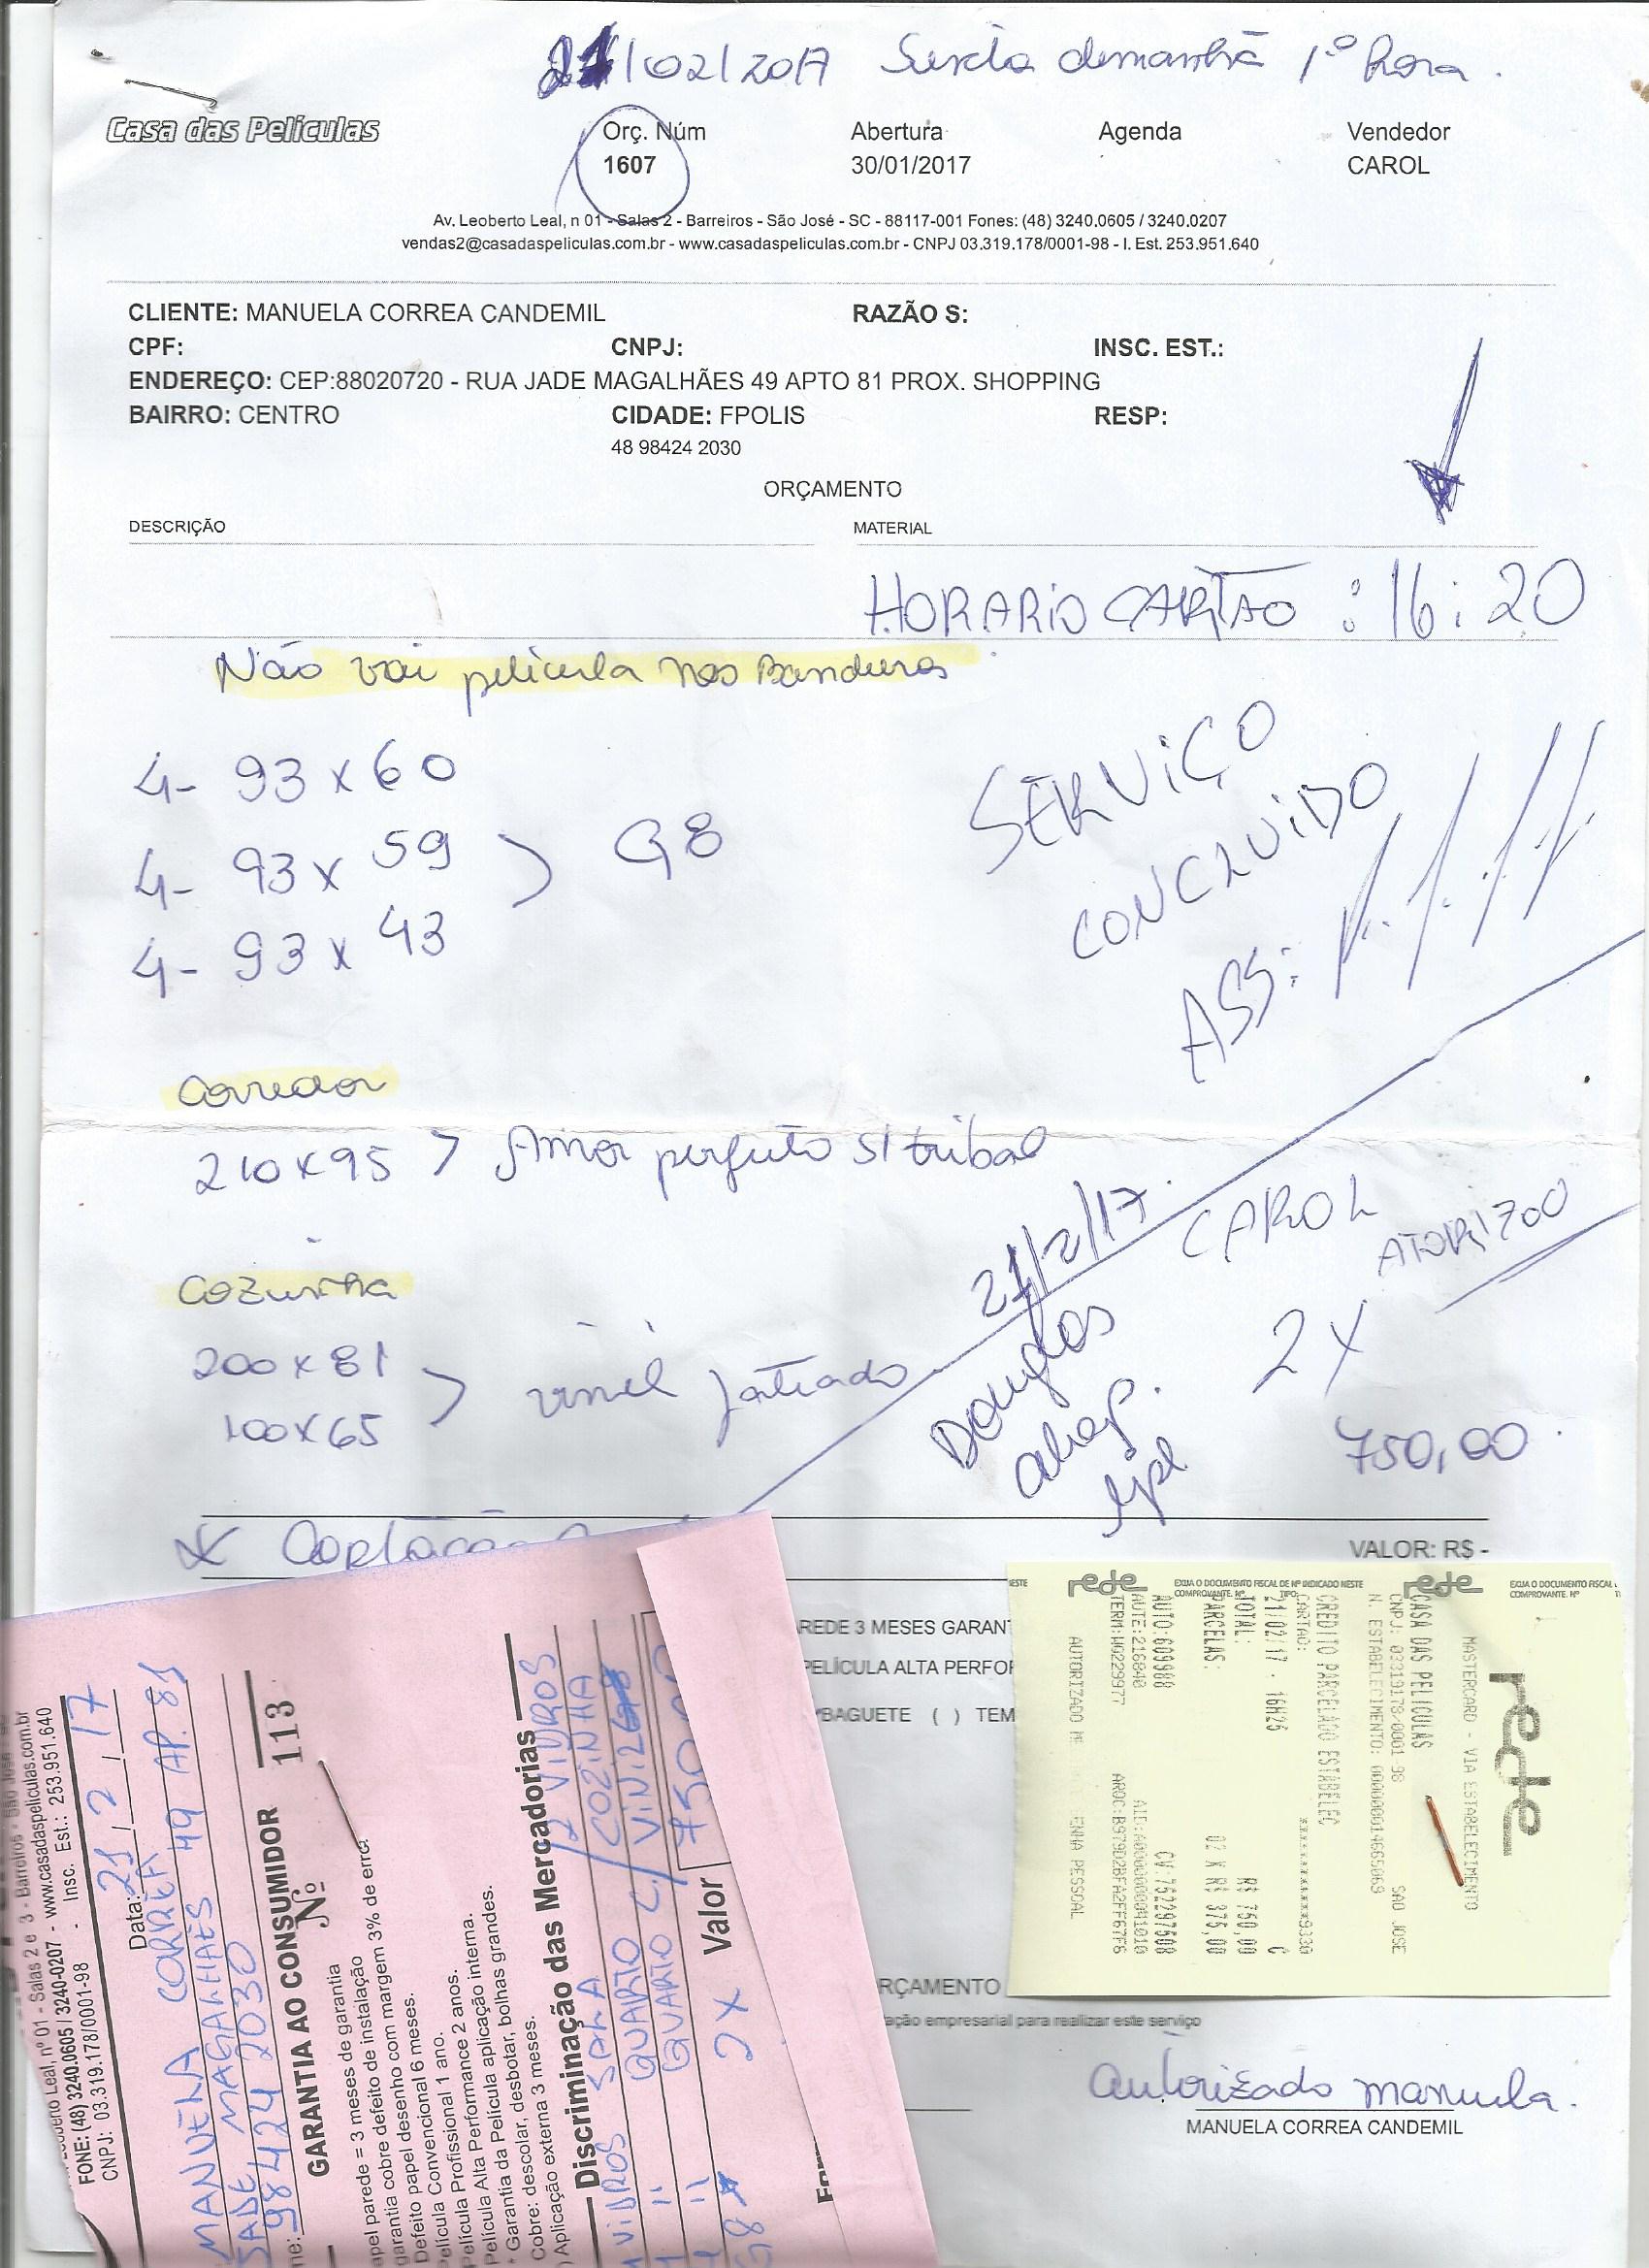 21/02/2017 demanhã 1º hora.
Casa das Películas
Orç. Núm Abertura Agenda Vendedor
1607 30/01/2017 CAROL
Av. Leoberto Leal, n 01 - Salas 2 - Barreiros - São José - SC - 88117-001 Fones: (48) 3240.0605 / 3240.0207
vendas2@casadaspeliculas.com.br - www.casadaspeliculas.com.br - CNPJ 03.319.178/0001-98 - I. Est. 253.951.640
CLIENTE: MANUELA CORREA CANDEMIL RAZÃO S:
CPF: CNPJ: INSC. EST.:
ENDEREÇO: CEP:88020720 - RUA JADE MAGALHÃES 49 APTO 81 PROX. SHOPPING
BAIRRO: CENTRO CIDADE: FPOLIS RESP:
48 98424 2030
ORÇAMENTO
DESCRIÇÃO MATERIAL
HORARIO CARTÃO : 16:20
Não vai película nas Banduras
4- 93 x 60
4- 93 x 59 > G8
4- 93 x 43
SERVIÇO
CONCLUIDO
ASS:
Corredor
210 x 95 > Amor perfeito s/ tribal
21/2/17
CAROL
ATORIZOO
Cozinha
200 x 81
100 x 65 > vinil jateado
Douglas
2x
750,00
VALOR: R$ -
AREDE 3 MESES GARANT
PELÍCULA ALTA PERFOR
BAGUETE ( ) TEM
RÇAMENTO
ação empresarial para realizar este serviço
autorizado manuela.
MANUELA CORREA CANDEMIL
Leoberto Leal, nº 01 - Salas 2 e 3 - Barreiros - São José
FONE: (48) 3240.0605 / 3240-0207 - www.casadaspeliculas.com.br
CNPJ: 03.319.178/0001-98 - Insc. Est.: 253.951.640
Data: 21, 2, 17
MANUELA CORREA
MAGALHAES 49 AP. 81
98424 2030
GARANTIA AO CONSUMIDOR
Nº 113
apel parede = 3 meses de garantia
garantia cobre defeito de instalação
Defeito papel desenho com margem 3% de erro.
Película Convencional 6 meses.
Película Profissional 1 ano.
Película Alta Performance 2 anos.
* Garantia da Película aplicação interna.
Cobre: descolar, desbotar, bolhas grandes.
) Aplicação externa 3 meses.
Discriminação das Mercadorias
VIDROS SALA / 2 VIDROS
" QUARTO / COZINHA
" QUARTO C/ VINIL
G8 2X Valor 750,00
rede
MASTERCARD - VIA ESTABELECIMENTO
EXIJA O DOCUMENTO FISCAL DE Nº INDICADO NESTE
COMPROVANTE. Nº TIPO:
CASA DAS PELICULAS
CNPJ: 03319178/0001 98 SAO JOSE
N. ESTABELECIMENTO: 000000014665063
CREDITO PARCELADO ESTABELEC
CARTAO: ************9330
21/02/17 - 16H26 C
TOTAL: R$ 750,00
PARCELAS: 02 X R$ 375,00
AUTO:609988 CV:752297508
AUTE:216840 AID:A0000000041010
TERM:WG229977 ARQC:B979D2BFA2FF67F6
AUTORIZADO ME SENHA PESSOAL